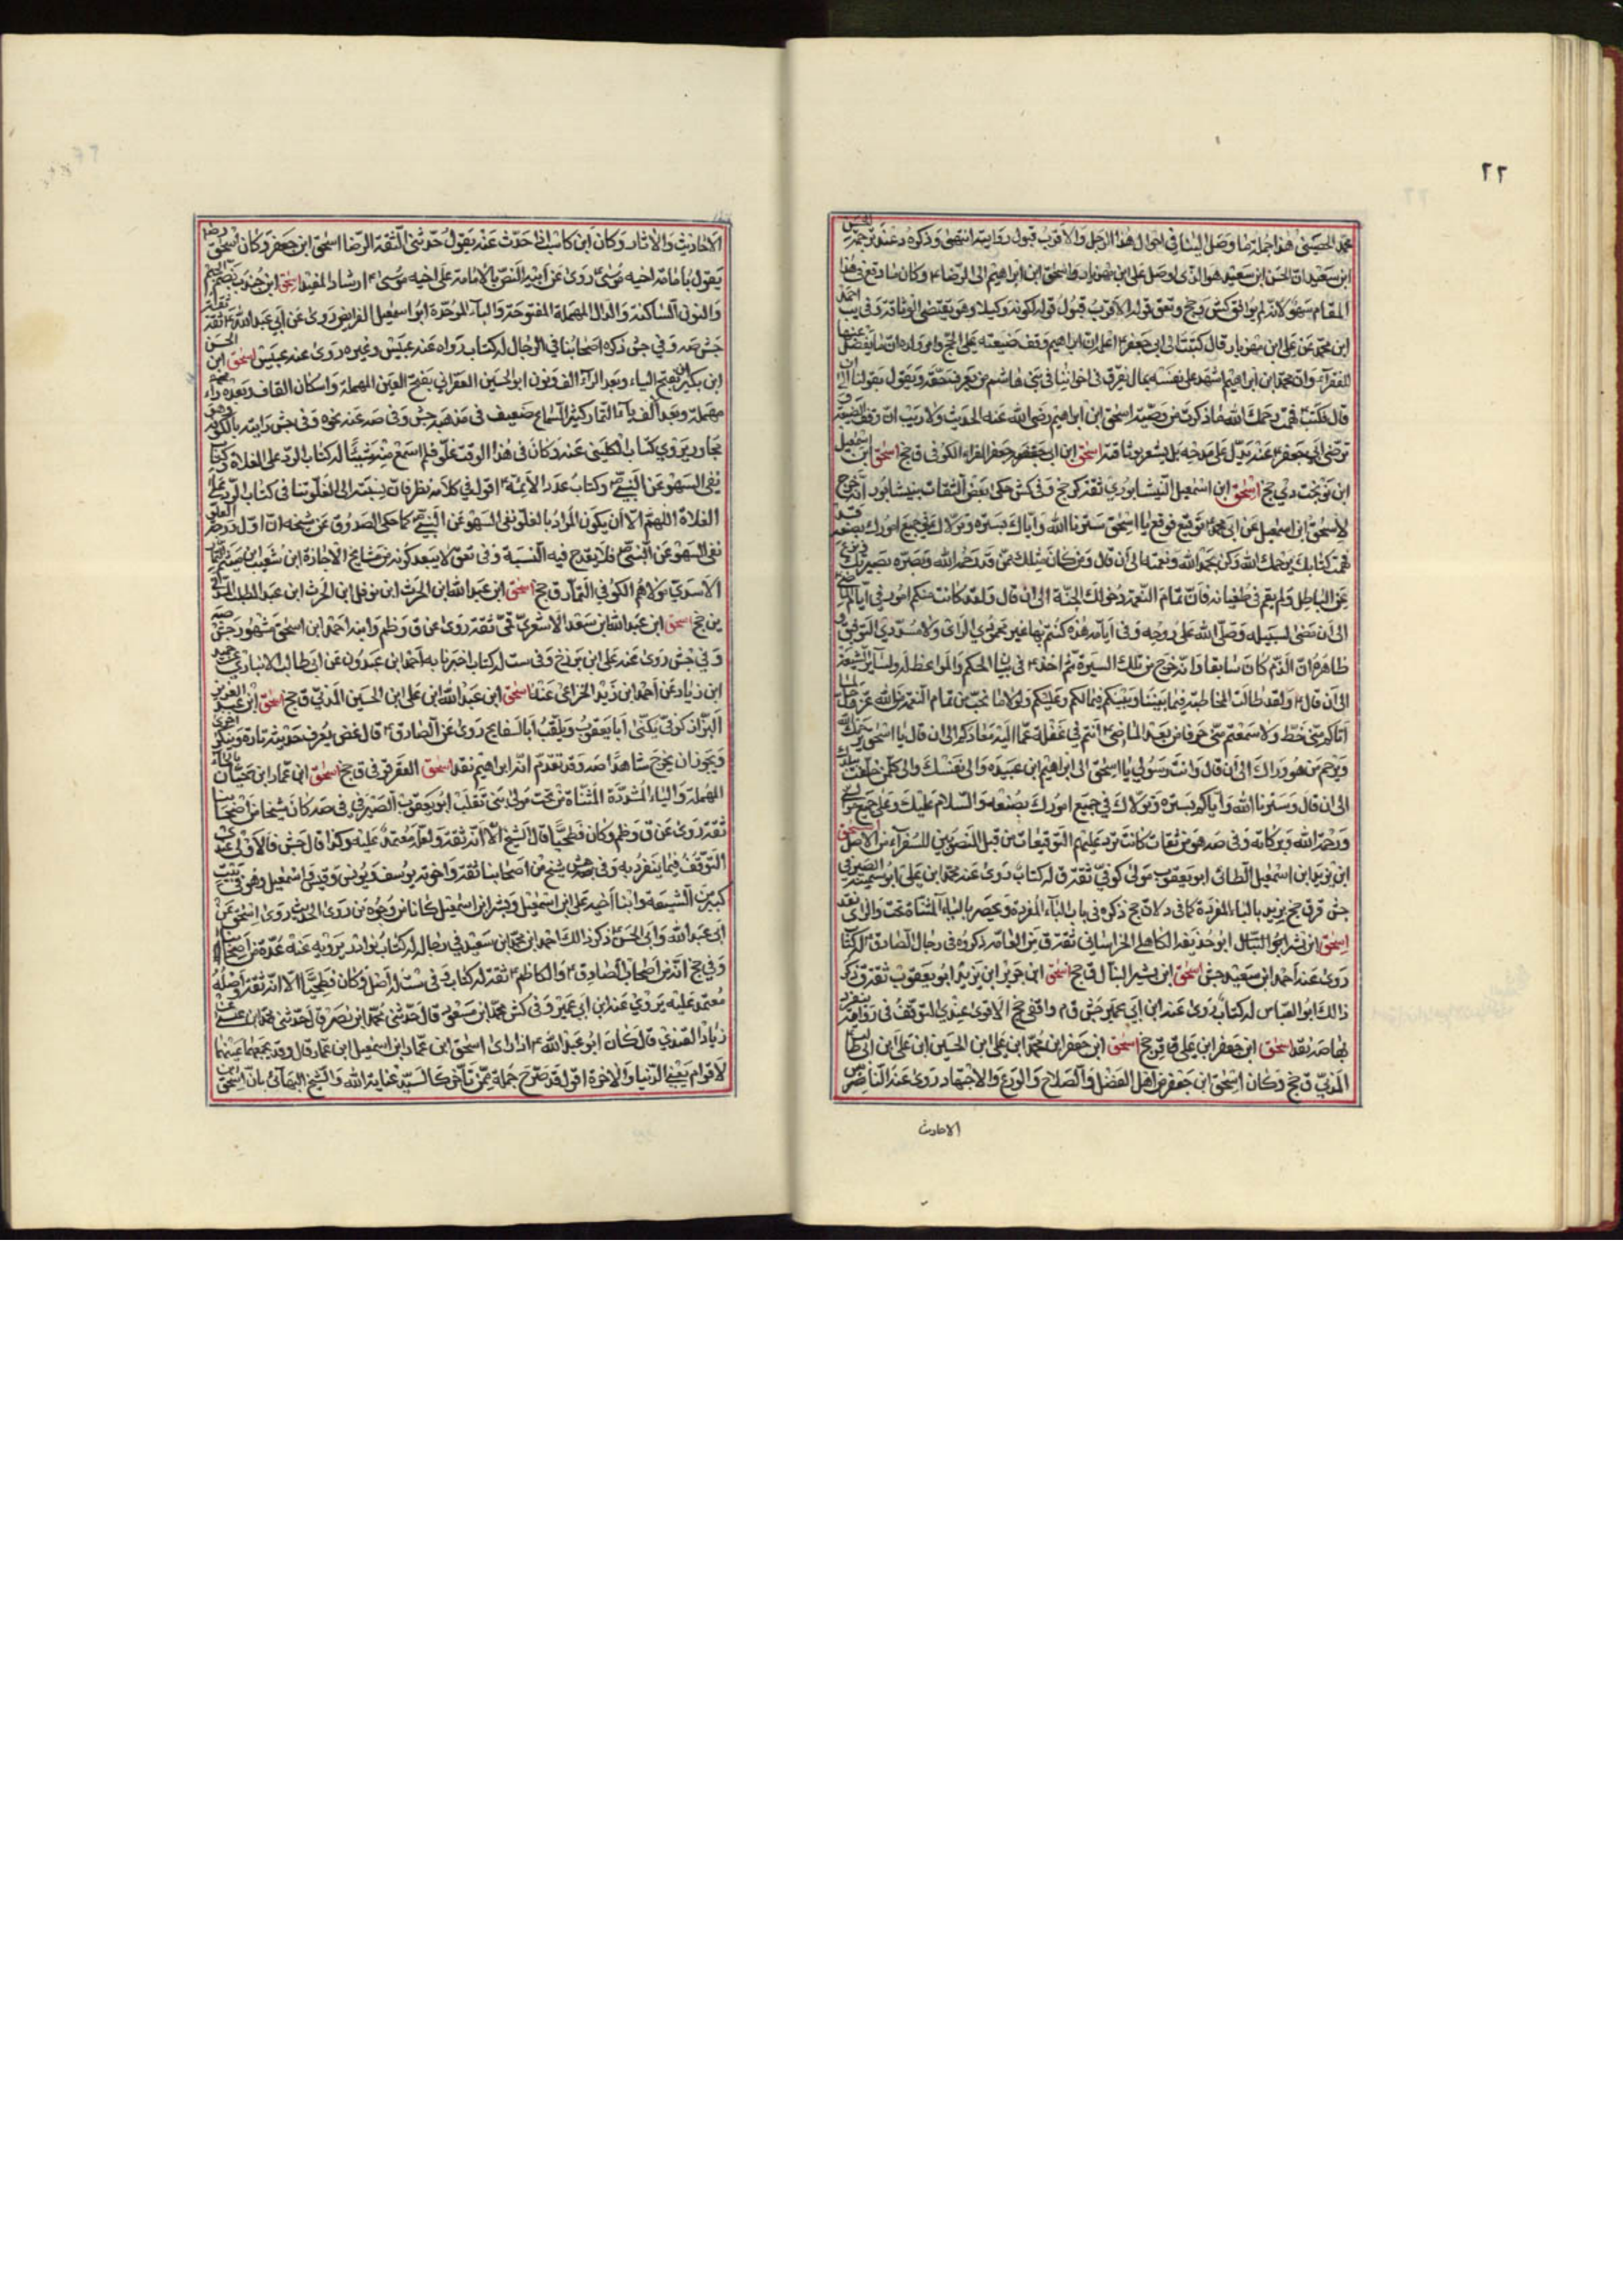 ٢٢
محمد الحصيني هذا جملة ما وصل الينا في احوال هذا الرجل والاقرب قبول روايته انتهى وذكره د عند ترجمة الحسن
ابن سعيد ان الحسن ابن سعيد هو الذي اوصل علي ابن مهزيار واسحق ابن ابراهيم الى الرضا ع وكان ما وقع في هذا
المقام سهو لانه لم يوافق كش و جخ وتعق قوله الاقرب قبول قوله لكونه وكيلا وهو يقتضي الوثاقة وفي يب احمد
ابن محمد عن علي ابن مهزيار قال كتبت الى ابي جعفر ع اعلمه ان ابراهيم وقف ضيعته على الحج وام ولده وما يفضل عنها
للفقراء وان محمد ابن ابراهيم اشهد على نفسه بمال يفرق في اخواننا في بني هاشم من يعرف حقه ويقول بقولنا الى ان
قال فكتبت فهمت رحمك الله ما ذكرت من وصية اسحق ابن ابراهيم رضي الله عنه الحديث ولا ريب ان وقف الضيعة و
ترضى ابي جعفر ع عنه يدل على مدحه بل يشعر بوثاقته اسحق ابن ابي جعفر جعفر الفراء الكوفي ق جخ اسحق ابن اسمعيل
ابن نوبخت دي جخ اسحق ابن اسمعيل النيشابوري ثقة كر جخ وفي كش حكى بعض الثقات بنيشابور انه خرج
لاسحق ابن اسمعيل عن ابي محمد ع توقيع فوقع يا اسحق سترنا الله واياك بستره وتولاك في جميع امورك بصنعه قد
فهمت كتابك يرحمك الله ونحن بحمد الله ونعمته الى ان قال ومن كان مثلك ممن قد رحمه الله وبصره بصيرتك و نزع
عن الباطل ولم يقم في طغيانه فان تمام النعمة دخولك الجنة الى ان قال ولقد كانت منكم امور في ايام الماضي
الى ان مضى لسبيله وصلى الله على روحه وفي ايام هذه كنتم بها غير محمودي الراي ولا مسددي التوفيق و
ظاهره ان الذم كان سابقا وانه خرج من تلك السيرة ثم اخذ ع في بيان الحكم والمواعظ له ولساير الشيعة
الى ان قال ع ولقد طالت المخاطبة فيما بيننا وبينكم فيما لكم وعليكم ولولا ما نحب من تمام النعمة من الله عز وجل لما
اتاكم مني خط ولا سمعتم مني حرفا من بعد الماضي ع انتم في غفلة عما اليه معادكم الى ان قال يا اسحق يرحمك الله
ويرحم من هو وراك الى ان قال وانت رسولي يا اسحق الى ابراهيم ابن عبيده والى نفسك والى كل من خلفت ببلدك
الى ان قال وسترنا الله واياكم بستره وتولاك في جميع امورك بصنعه والسلام عليك وعلى جميع موالي
ورحمة الله وبركاته وفي صه هو من ثقات كانت ترد عليهم التوقيعات من قبل المنصوبين للسفراء من الاصل اسحق
ابن بريد ابن اسمعيل الطائي ابو يعقوب مولى كوفي ثقة ق له كتاب روى عنه محمد ابن علي ابو سمينه الصيرفي
جش قرق جخ يزيد بالباء المفردة كما في د لان جخ ذكره في باب الباء المفردة ويحصر بالياء المثناة تحت والزاي نقد
اسحق ابن بشر ابو التبال ابو حذيفه الكاهلي الخراساني ثقة ق من العامة ذكروه في رجال الصادق ع له كتاب
روى عنه احمد ابن سعيد جش اسحق ابن بشير النبال ق جخ اسحق ابن جرير ابن يزيد ابو يعقوب ثقة ق ذكر
ذالك ابو العباس له كتاب روى عنه ابن ابي عمير جش ق م واقفي جخ الاقوى عندي التوقف في رواية ينفرد
بها صه نقد اسحق ابن جعفر ابن علي ق ق جخ اسحق ابن جعفر ابن محمد ابن علي ابن الحسين ابن علي ابن ابي طالب
المدني ق جخ وكان اسحق ابن جعفر من اهل الفضل والصلاح والورع والاجتهاد روى عنه الناس
الاحاديث
الاحاديث والاثار وكان ابن كاسب اذا حدث عنه يقول حدثني الثقة الرضا اسحق ابن جعفر وكان اسحق رض
يقول بامامة اخيه موسى ع روى عن ابيه النص بالامامة على اخيه موسى ع ارشاد المفيد اسحق ابن جندب بضم الجيم
والنون الساكنة والدال المهملة المفتوحة والباء الموحدة ابو اسمعيل الفرايضي روى عن ابي عبد الله ع ثقة ثقة
جش صه وفي جش ذكره اصحابنا في الرجال له كتاب رواه عنه عبيس وغيره روى عنه عبيس اسحق ابن الحسن
ابن بكران بفتح الباء وبعد الراء الف ونون ابو الحسين العقراني بفتح العين المهملة واسكان القاف وبعده راء
مهملة وبعد الف ياء التمار كثير السماع ضعيف في مذهبه جش وفي صه عنه نحوه وفي جش رايته بالكوفة وهو
مجاور يروي كتاب الكليني عنه وكان في هذا الوقت غلوا فلم اسمع منه شيئا له كتاب الرد على الغلاة وكتاب
نفي السهو عن النبي ص وكتاب عدد الائمة ع اقول في كلامه نظر فان نسبته الى الغلو ينافي كتاب الرد على
الغلاة اللهم الا ان يكون المراد بالغلو نفي السهو عن النبي ص كما حكى الصدوق عن شيخه ان اول درجة الغلو
نفي السهو عن النبي ص فلا يقدح فيه النسبة وفي تعق لا يبعد كونه من مشايخ الاجازة ابن شعيب ابن ميثم التمار
الاسدي مولاهم الكوفي التمار ق جخ اسحق ابن عبد الله ابن الحرث ابن نوفل ابن الحرث ابن عبد المطلب المدني
ين جخ اسحق ابن عبد الله ابن سعد الاشعري قمي ثقة روى عن ق و ظم وابنه احمد ابن اسحق مشهور جش صه
وفي جش روى عنه علي ابن بزرج وفي ست له كتاب اخبرنا به احمد ابن عبدون عن ابي طالب الانباري عن حميد
ابن زياد عن احمد ابن زيد الخزاعي عنه اسحق ابن عبد الله ابن علي ابن الحسين المدني ق جخ اسحق ابن عبد العزيز
البزاز كوفي يكنى ابا يعقوب ويلقب ابا السفاتج روى عن الصادق ع قال غض يعرف حديثه تارة وينكر اخرى
ويجوز ان يخرج شاهدا صه وقد تقدم انه ابراهيم نقد اسحق العقرقوفي ق جخ اسحق ابن عمار ابن حيان بالحاء
المهملة والياء المشددة المثناة من تحت مولى بني تغلب ابو يعقوب الصيرفي في صه كان شيخا من اصحابنا
ثقة روى عن ق و ظم وكان فطحيا قال الشيخ الا انه ثقة واصله معتمد عليه وكذا قال جش فالاولى عندي
التوقف فيما ينفرد به وفي جش شيخ من اصحابنا ثقة واخوته يوسف ويونس وقيس واسمعيل وهو في بيت
كبير من الشيعة وابنا اخيه علي ابن اسمعيل وبشر ابن اسمعيل كانا من وجوه من روى الحديث روى اسحق عن
ابي عبد الله وابي الحسن ع ذكر ذالك احمد ابن محمد ابن سعيد في رجاله له كتاب نوادر يرويه عنه عدة من اصحابنا
وفي جخ انه من اصحاب الصادق ع والكاظم ع ثقة له كتاب وفي ست له اصل وكان فطحيا الا انه ثقة واصله
معتمد عليه يروي عنه ابن ابي عمير وفي كش محمد ابن مسعود قال حدثني محمد ابن نصير قال حدثني محمد ابن عيسى عن
زياد القندي قال كان ابو عبد الله ع اذا راى اسحق ابن عمار واسمعيل ابن عمار قال وقد يجمعهما
لاقوام يعني الدنيا والاخرة اقول قد صرح جملة ممن تاخر كالسيد عناية الله والشيخ البهائي بان اسحق